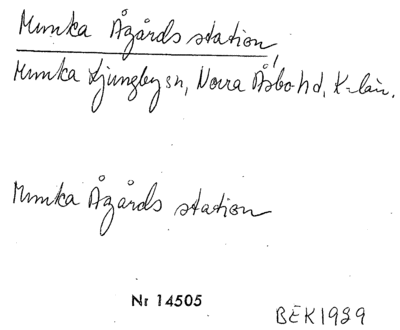 Munka Ågårds station,
Munka Ljungby sn, Norra Åsbo hd, K-län.
Munka Ågårds station
Nr 14505
BEK1939